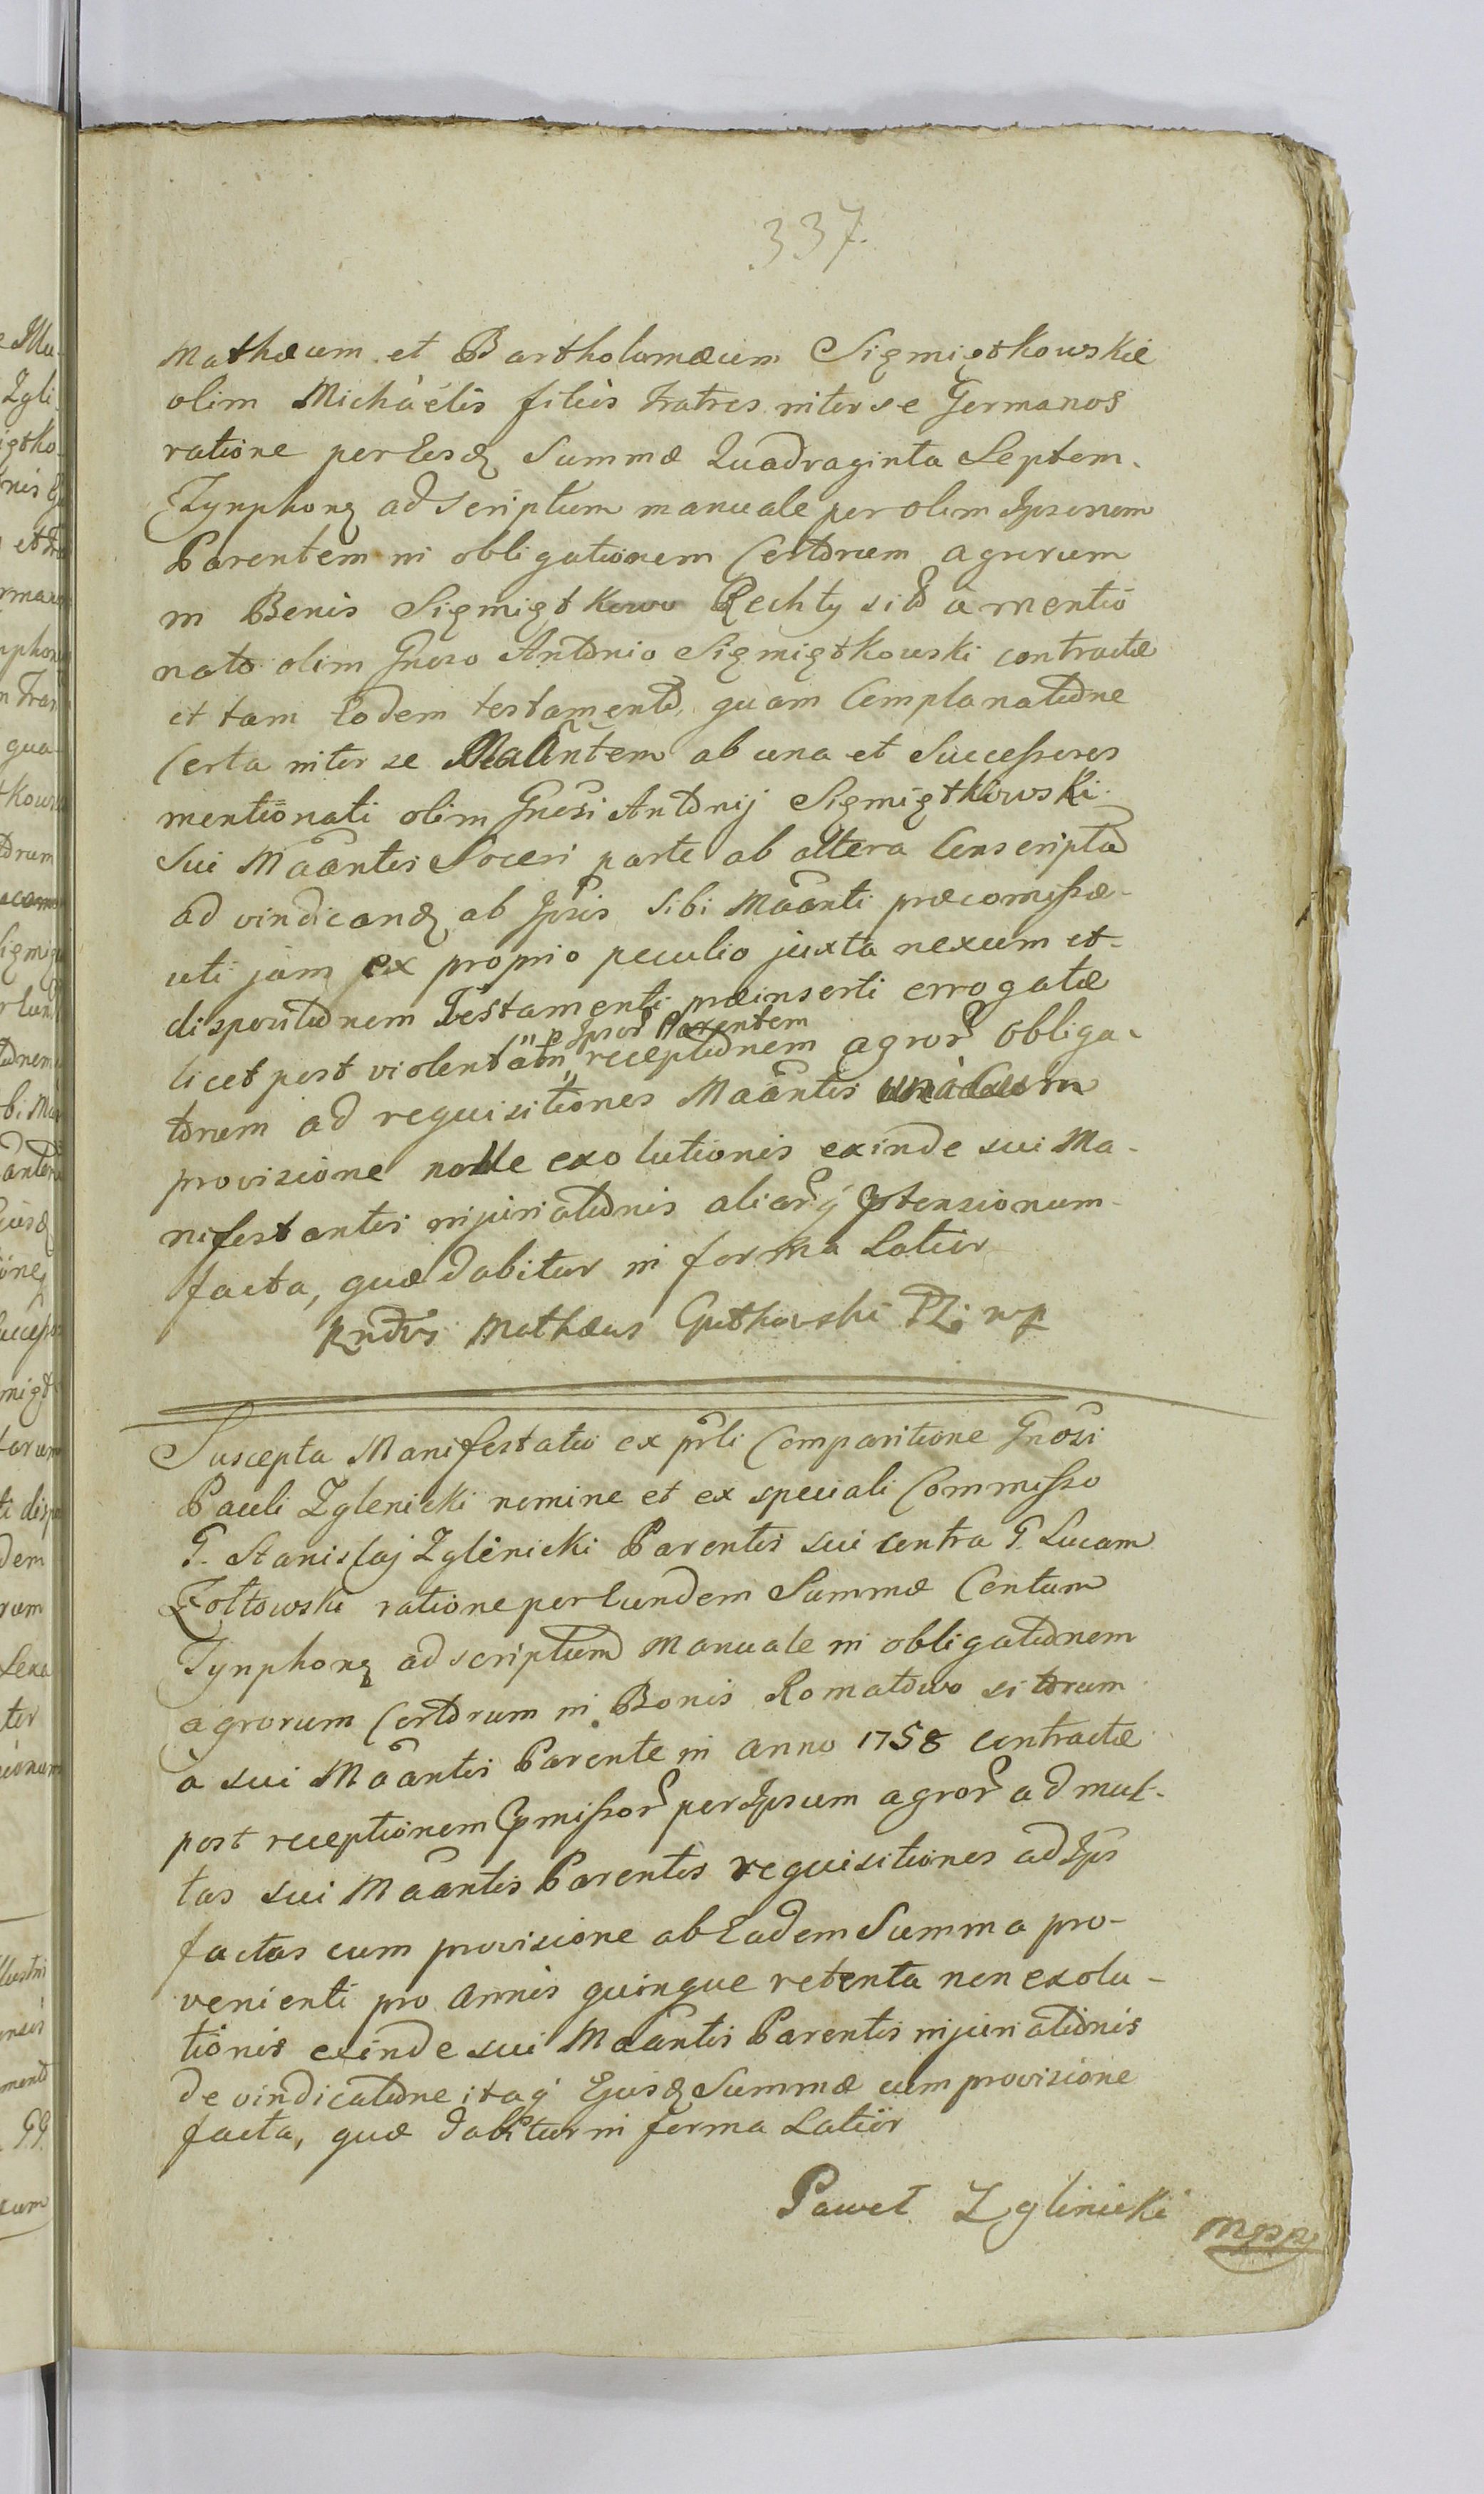 337.
Mathæum et Bartholomæum Siemiątkowskie
olim Michàélis filiis fratres inter se Germanos
ratione per Eosdę Summæ Quadraginta Septem
Tynphonę ad Scriptum manuale per olim Ipsorum
Parentem in obligationem Certorum agrorum
in Bonis Siemiątkowo Rechty sito à mentio
nato olim Gneroso Antonio Siemiątkowski contractæ
et tam Eodem testamento, quam Complanatione
Certa inter se Maantem ab una et Successores
mentionati olim Gnesi Antonij Siemiątkowski
sui Maantis Soceri parte ab altera Conscripta
ad vindicandę ab Ipsis sibi Maanti præcomissæ
uti jam ex proprio peculio juxta nexum et
dispositionem Testamenti præinserti errogatæ
licet post violentam receptionem agror Obliga-
p Ipsor Parentem
torum ad requisitiones Maantis unàcum
provisione nolle exolutionis exinde sui Ma-
nifestantis injuriationis aliarq ptensionum
facta, quæ dabitur in forma Latior
Rndus Mathæus Gutkowski mp
Suscepta Manifestatio ex prli Comparitione Gnosi
Pauli Zglenicki nomine et ex speciali Commisso
G. Stanislaj Zglinicki Parentis sui contra G. Lucam
Zołtowski ratione per Eundem Summæ Centum
Tynphonę ad scriptum Manuale in obligationem
agrorum Certorum in Bonis Romatowo sitorum
à sui Maantis Parente in anno 1758 contractæ
post receptionem pmissor per Ipsum agror ad mul-
tas sui Maantis Parentis requisitiones ad Ips
factas cum provisione ab Eadem Summa pro-
venienti pro Annis quinque retenta non exolu-
tionis exinde sui Maantis Parentis injuriationis
de vindicatione itaq Ejusdę Summæ cum provisione
facta, quæ dabitur in forma Latior
Paweł Zglinicki mpp